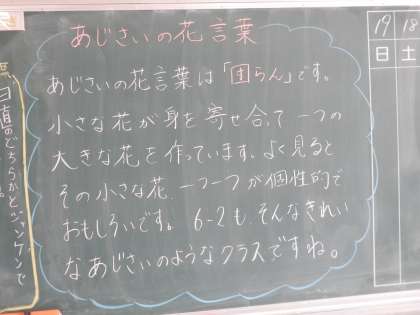 あじさいの花言葉
あじさいの花言葉は「団らん」です。
小さな花が身を寄せ合って一つの
大きな花を作っています。よく見ると
その小さな花、一つ一つが個性的で
おもしろいです。6-2も、そんなきれい
なあじさいのようなクラスですね。
19 18
日 土
日直のどちらかとジャンケンで